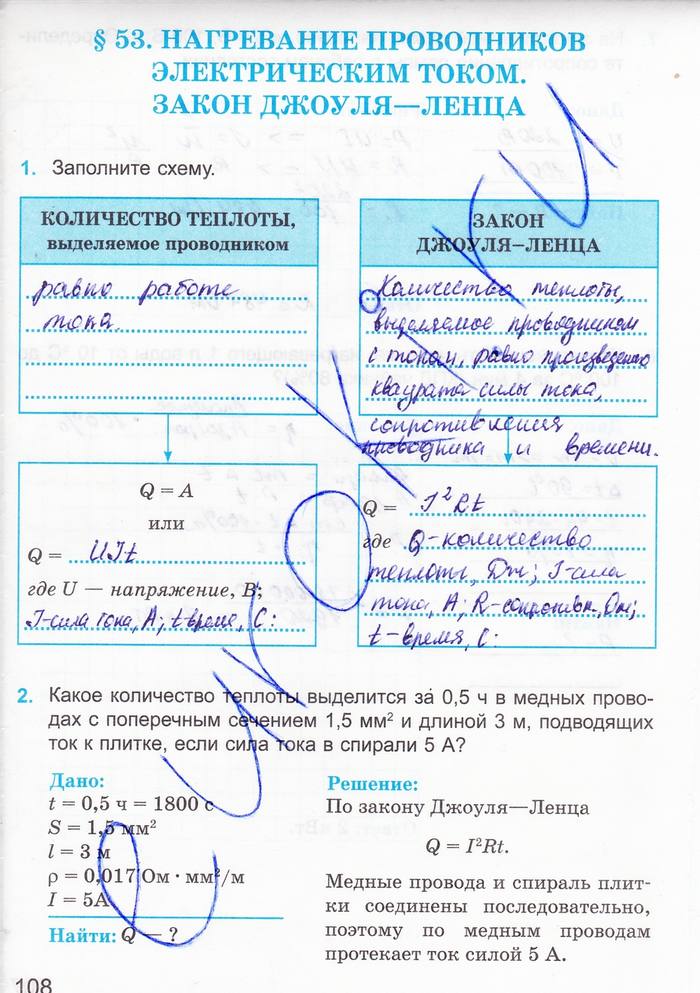 § 53. НАГРЕВАНИЕ ПРОВОДНИКОВ
ЭЛЕКТРИЧЕСКИМ ТОКОМ.
ЗАКОН ДЖОУЛЯ—ЛЕНЦА
1. Заполните схему.
КОЛИЧЕСТВО ТЕПЛОТЫ,
выделяемое проводником
равно работе
тока.
Q = A
или
Q = UIt
где U — напряжение, В;
I-сила тока, А; t-время, С:
ЗАКОН
ДЖОУЛЯ–ЛЕНЦА
Количество теплоты,
выделяемое проводником
с током, равно произведению
квадрата силы тока,
сопротивления
проводника и времени.
Q = I²Rt
где Q-количество
теплоты, Дж; I-сила
тока, А; R-сопротивл., Ом;
t-время, С:
2. Какое количество теплоты выделится за 0,5 ч в медных прово-
дах с поперечным сечением 1,5 мм² и длиной 3 м, подводящих
ток к плитке, если сила тока в спирали 5 А?
Дано:
t = 0,5 ч = 1800 с
S = 1,5 мм²
l = 3 м
ρ = 0,017 Ом · мм²/м
I = 5А
Найти: Q — ?
Решение:
По закону Джоуля—Ленца
Q = I²Rt.
Медные провода и спираль плит-
ки соединены последовательно,
поэтому по медным проводам
протекает ток силой 5 А.
108